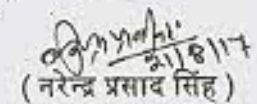 21/8/17
(नरेन्द्र प्रसाद सिंह)